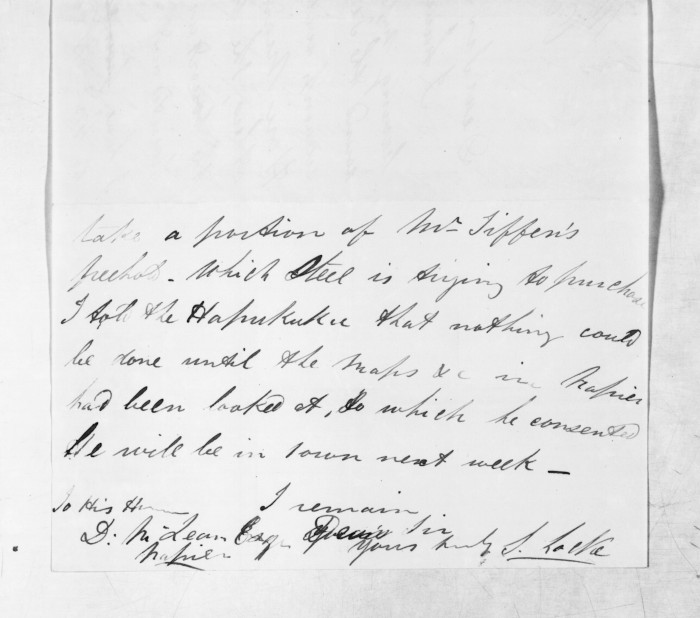 take a portion of Mr Tiffen's
freehold - which Steel is trying to purchase
I told the Hapukuku that nothing could
be done until the maps &c in Napier
had been looked at, to which he consented
He will be in town next week -
I remain
To His Honor
Sir
D: McLean Esqr Yours truly S. Locke
Napier